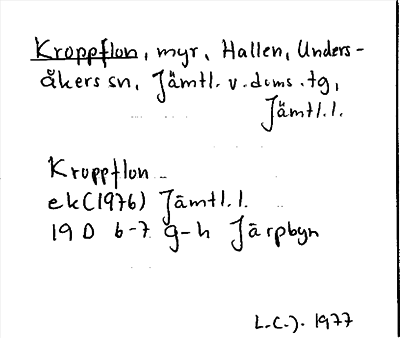 Kroppflon, myr, Hallen, Unders-
åkers sn, Jämtl. v. doms. tg,
Jämtl.l.
Kroppflon
ek (1976) Jämtl.l.
19 D 6-7 g-h Järpbyn
L.C.J. 1977